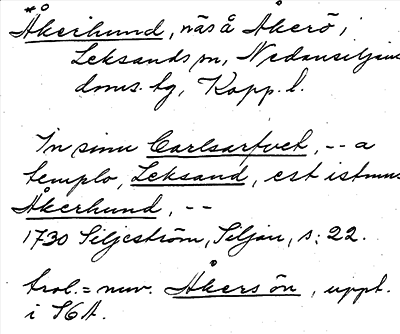 *Åkerhund, näs å Åkerö i
Leksands sn, Nedansiljans
doms. tg, Kopp. l.
In sinu Carlsarfvet, -- a
templo, Leksand, est istmus
Åkerhund, --
1730 Siljeström, Siljan, s: 22.
trol. = nuv. Åkersön, uppt.
i SGA.